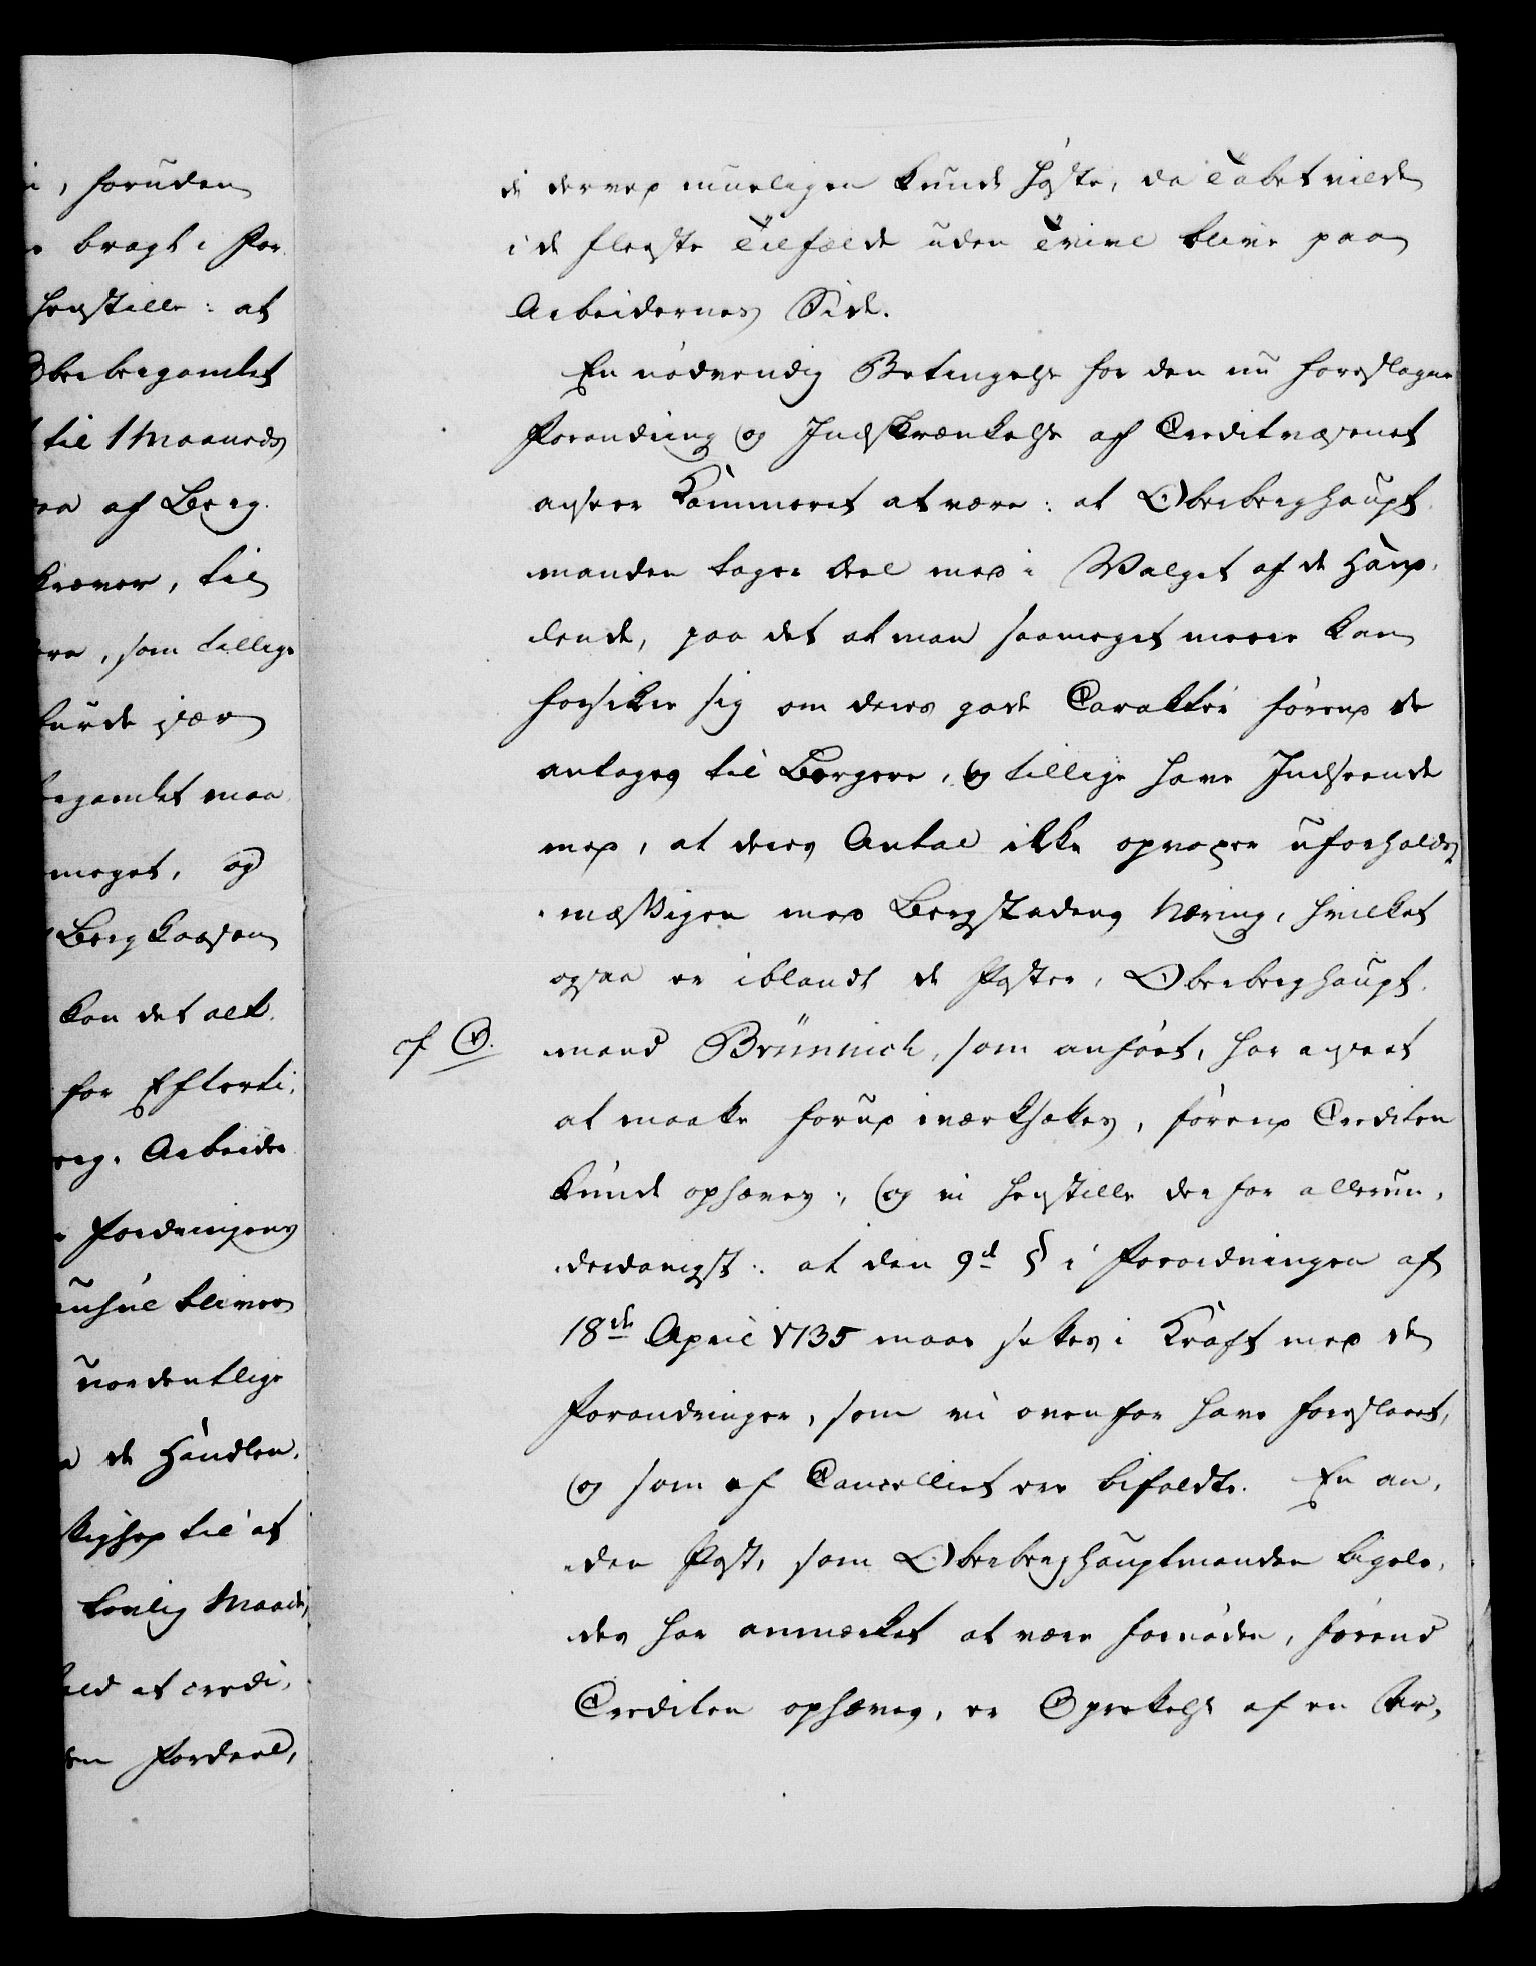 , foruden
bragt i For-
henstille: at
Oberbergamtet
til 1 Maaneds
af Berg-
kræver, til
, som tillige
burde især
gamtet maa
meget, og
Bergkassen
kan det alt-
for Efterti-
Arbeide
Fordringens
bliver
uordentlige
de Handlen-
til at
lovlig Maade,
at credi-
Fordeel,
de derved mueligen kunde høste, da Tabet vilde
i de fleste Tilfælde uden Tvivl blive paa
Arbeidernes Side.
En nødvendig Betingelse for den nu foreslagne
Forandring og Indskrænkelse af Creditvæsenet
anseer Kammeret at være: at Oberberghaupt-
manden tager Deel med i Valget af de Hand-
lende, paa det at man saameget meere kan
forsikre sig om deres gode Caracteer førend de
antages til Borgere, og tillige have Indseende
med, at deres Antal ikke opvoxer uforholds-
mæssigen med Bergstadens Næring, hvilket
ogsaa er iblandt de Poster, Oberberghaupt-
cf ⊕.
mand Brünnich, som anført, har anseet
at maatte forud iværksættes, førend Crediten
kunde ophæves; og vi henstille derfor allerun-
derdanigst: at den 9d § i Forordningen af
18de April 1735 maae sættes i Kraft med de
Forandringer, som vi ovenfor have foreslaaet,
og som af Cancelliet ere bifaldte. En an-
den Post, som Oberberghauptmanden ligele-
des har anmærket at være fornøden, førend
Crediten ophæves, er Oprettelse af en